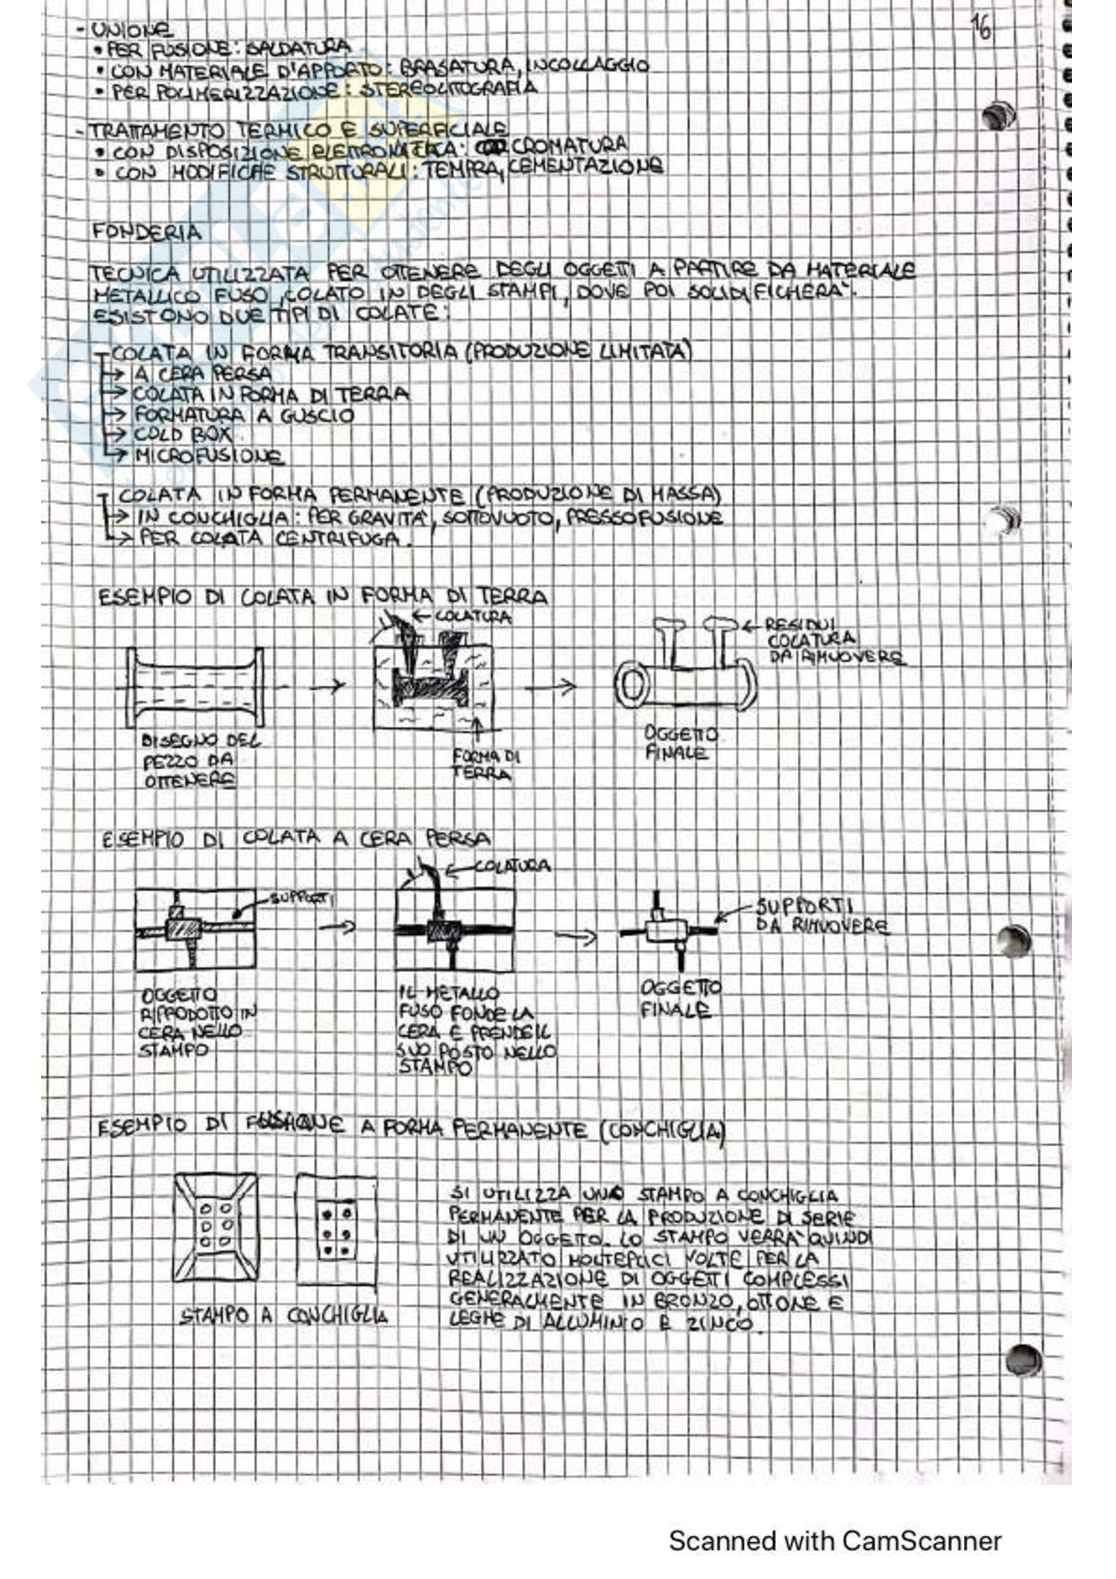 16
- UNIONE
• PER FUSIONE: SALDATURA
• CON MATERIALE D'APPORTO: BRASATURA, INCOLLAGGIO
• PER POLIMERIZZAZIONE: STEREOLITOGRAFIA
- TRATTAMENTO TERMICO E SUPERFICIALE
• CON DISPOSIZIONE CROMATURA
• CON MODIFICHE STRUTTURALI: TEMPRA, CEMENTAZIONE
FONDERIA
TECNICA UTILIZZATA PER OTTENERE DEGLI OGGETTI A PARTIRE DA MATERIALE
METALLICO FUSO, COLATO IN DEGLI STAMPI, DOVE POI SOLIDIFICHERA'.
ESISTONO DUE TIPI DI COLATE:
COLATA IN FORMA TRANSITORIA (PRODUZIONE LIMITATA)
→ A CERA PERSA
→ COLATA IN FORMA DI TERRA
→ FORMATURA A GUSCIO
→ COLD BOX
→ MICROFUSIONE
COLATA IN FORMA PERMANENTE (PRODUZIONE DI MASSA)
→ IN CONCHIGLIA: PER GRAVITA', SOTTOVUOTO, PRESSOFUSIONE
→ PER COLATA CENTRIFUGA.
ESEMPIO DI COLATA IN FORMA DI TERRA
COLATURA
RESIDUI
COLATURA
DA RIMUOVERE
DISEGNO DEL
PEZZO DA
OTTENERE
FORMA DI
TERRA
OGGETTO
FINALE
ESEMPIO DI COLATA A CERA PERSA
COLATURA
SUPPORTI
SUPPORTI
DA RIMUOVERE
OGGETTO
RIPRODOTTO IN
CERA NELLO
STAMPO
IL METALLO
FUSO FONDE LA
CERA E PRENDE IL
SUO POSTO NELLO
STAMPO
OGGETTO
FINALE
ESEMPIO DI FUSIONE A FORMA PERMANENTE (CONCHIGLIA)
STAMPO A CONCHIGLIA
SI UTILIZZA UNO STAMPO A CONCHIGLIA
PERMANENTE PER LA PRODUZIONE DI SERIE
DI UN OGGETTO. LO STAMPO VERRA' QUINDI
UTILIZZATO MOLTEPLICI VOLTE PER LA
REALIZZAZIONE DI OGGETTI COMPLESSI
GENERALMENTE IN BRONZO, OTTONE E
LEGHE DI ALLUMINIO E ZINCO.
Scanned with CamScanner